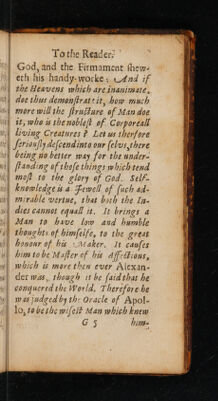 To the Reader.
God, and the Firmament shew-
eth his handy-worke; And if
the Heavens which are inanimate,
doe thus demonstrate it, how much
more will the structure of Man doe
it, who is the noblest of Corporeall
living Creatures? Let us therfore
seriously descend into our selvs, there
being no better way for the under-
standing of those things which tend
most to the glory of God. Self-
knowledge is a Jewell of such ad-
mirable vertue, that both the In-
dies cannot equall it. It brings a
Man to have low and humble
thoughts of himselfe, to the great
honour of his Maker. It causes
him to be Master of his Affections,
which is more then ever Alexan-
der was, though it be said that he
conquered the World. Therefore he
was judged by the Oracle of Apol-
lo, to be the wisest Man which knew
G 5 him-